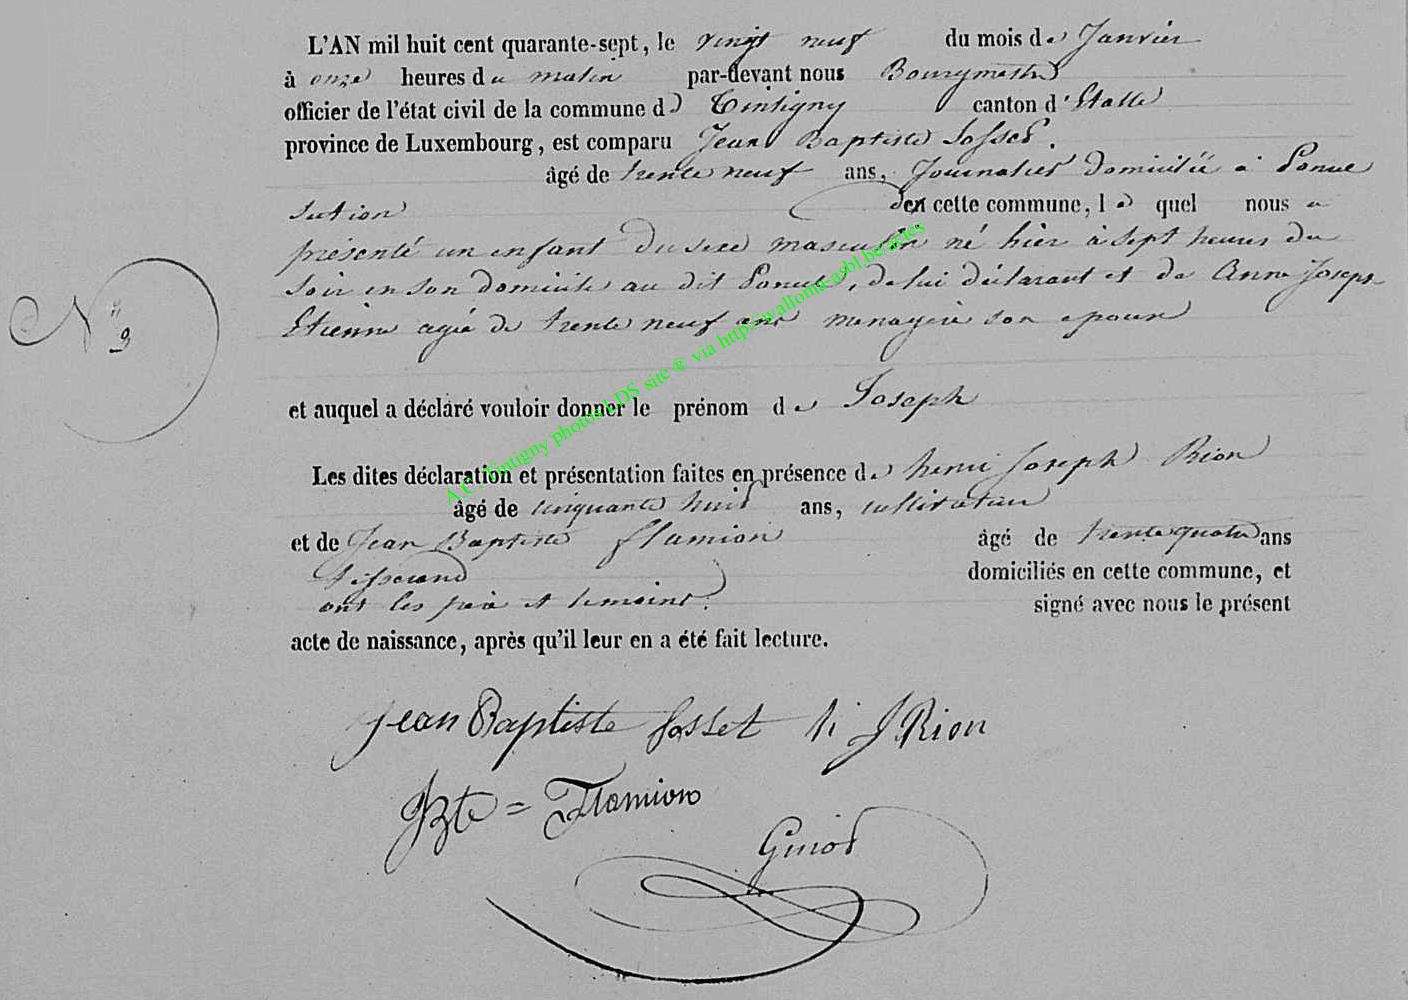 L'AN mil huit cent quarante-sept, le vingt neuf du mois de Janvier
à onze heures du matin par-devant nous Bourgmestre
officier de l'état civil de la commune de Tintigny canton d'Etalle
province de Luxembourg, est comparu Jean Baptiste Fosset.
âgé de trente neuf ans, Journalier domicilié à Ponce
section den cette commune, le quel nous a
présenté un enfant du sexe masculin né hier à sept heures du
soir en son domicile au dit Ponce, de lui déclarant et de Anne Joseph
Etienne agée de trente neuf ans menagère son epouse
N° 9
et auquel a déclaré vouloir donner le prénom de Joseph
Les dites déclaration et présentation faites en présence de henri Joseph Rion
âgé de cinquante huit ans, cultivateur
et de Jean Baptiste flamion âgé de trente quatre ans
tisserand domiciliés en cette commune, et
ont les père et temoins signé avec nous le présent
acte de naissance, après qu'il leur en a été fait lecture.
Jean Baptiste fosset h J Rion
JBte = Flamion
Guiot
A.C. Tintigny photos LDS site @ via http://wallonia-asbl.be/actes